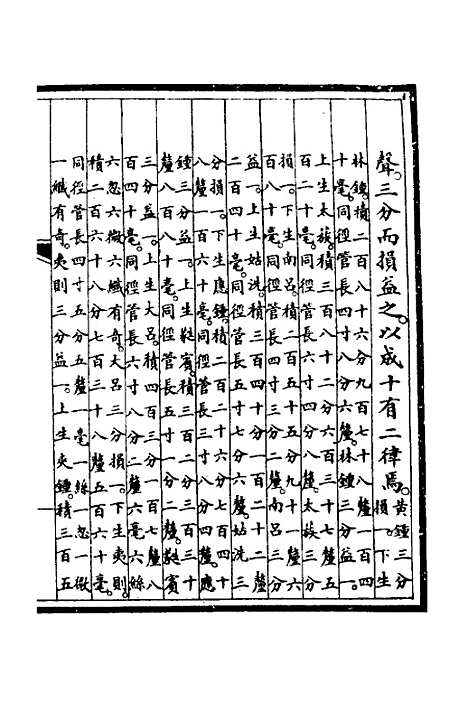 聲。三分而損益之。以成十有二律焉。黃鍾三分
損一。下生
林鍾。積二百八十六分九百七十八釐一百四
十毫。同徑管長四寸八分六釐。林鍾三分益一。
上生太蔟。積三百八十二分六百三十七釐五
百二十毫。同徑管長六寸四分八釐。太蔟三分
損一。下生南呂。積二百五十五分九十一釐六
百八十毫。同徑管長四寸三分二釐。南呂三分
益一。上生姑洗。積三百四十分一百二十二釐
二百四十毫。同徑管長五寸七分六釐。姑洗三
分損一。下生應鍾。積二百二十六分七百四十
八釐一百六十毫。同徑管長三寸八分四釐。應
鍾三分益一。上生蕤賓。積三百二分三百三十
釐八百八十毫。同徑管長五寸一分二釐。蕤賓
三分益一。上生大呂。積四百三分一百七釐八
百四十毫。同徑管長六寸八分二釐六毫六絲
六忽六微六纖有奇。大呂三分損一。下生夷則。
積二百六十八分七百三十八釐五百六十毫。
同徑管長四寸五分五釐一毫一絲一忽一微
一纖有奇。夷則三分益一。上生夾鍾。積三百五